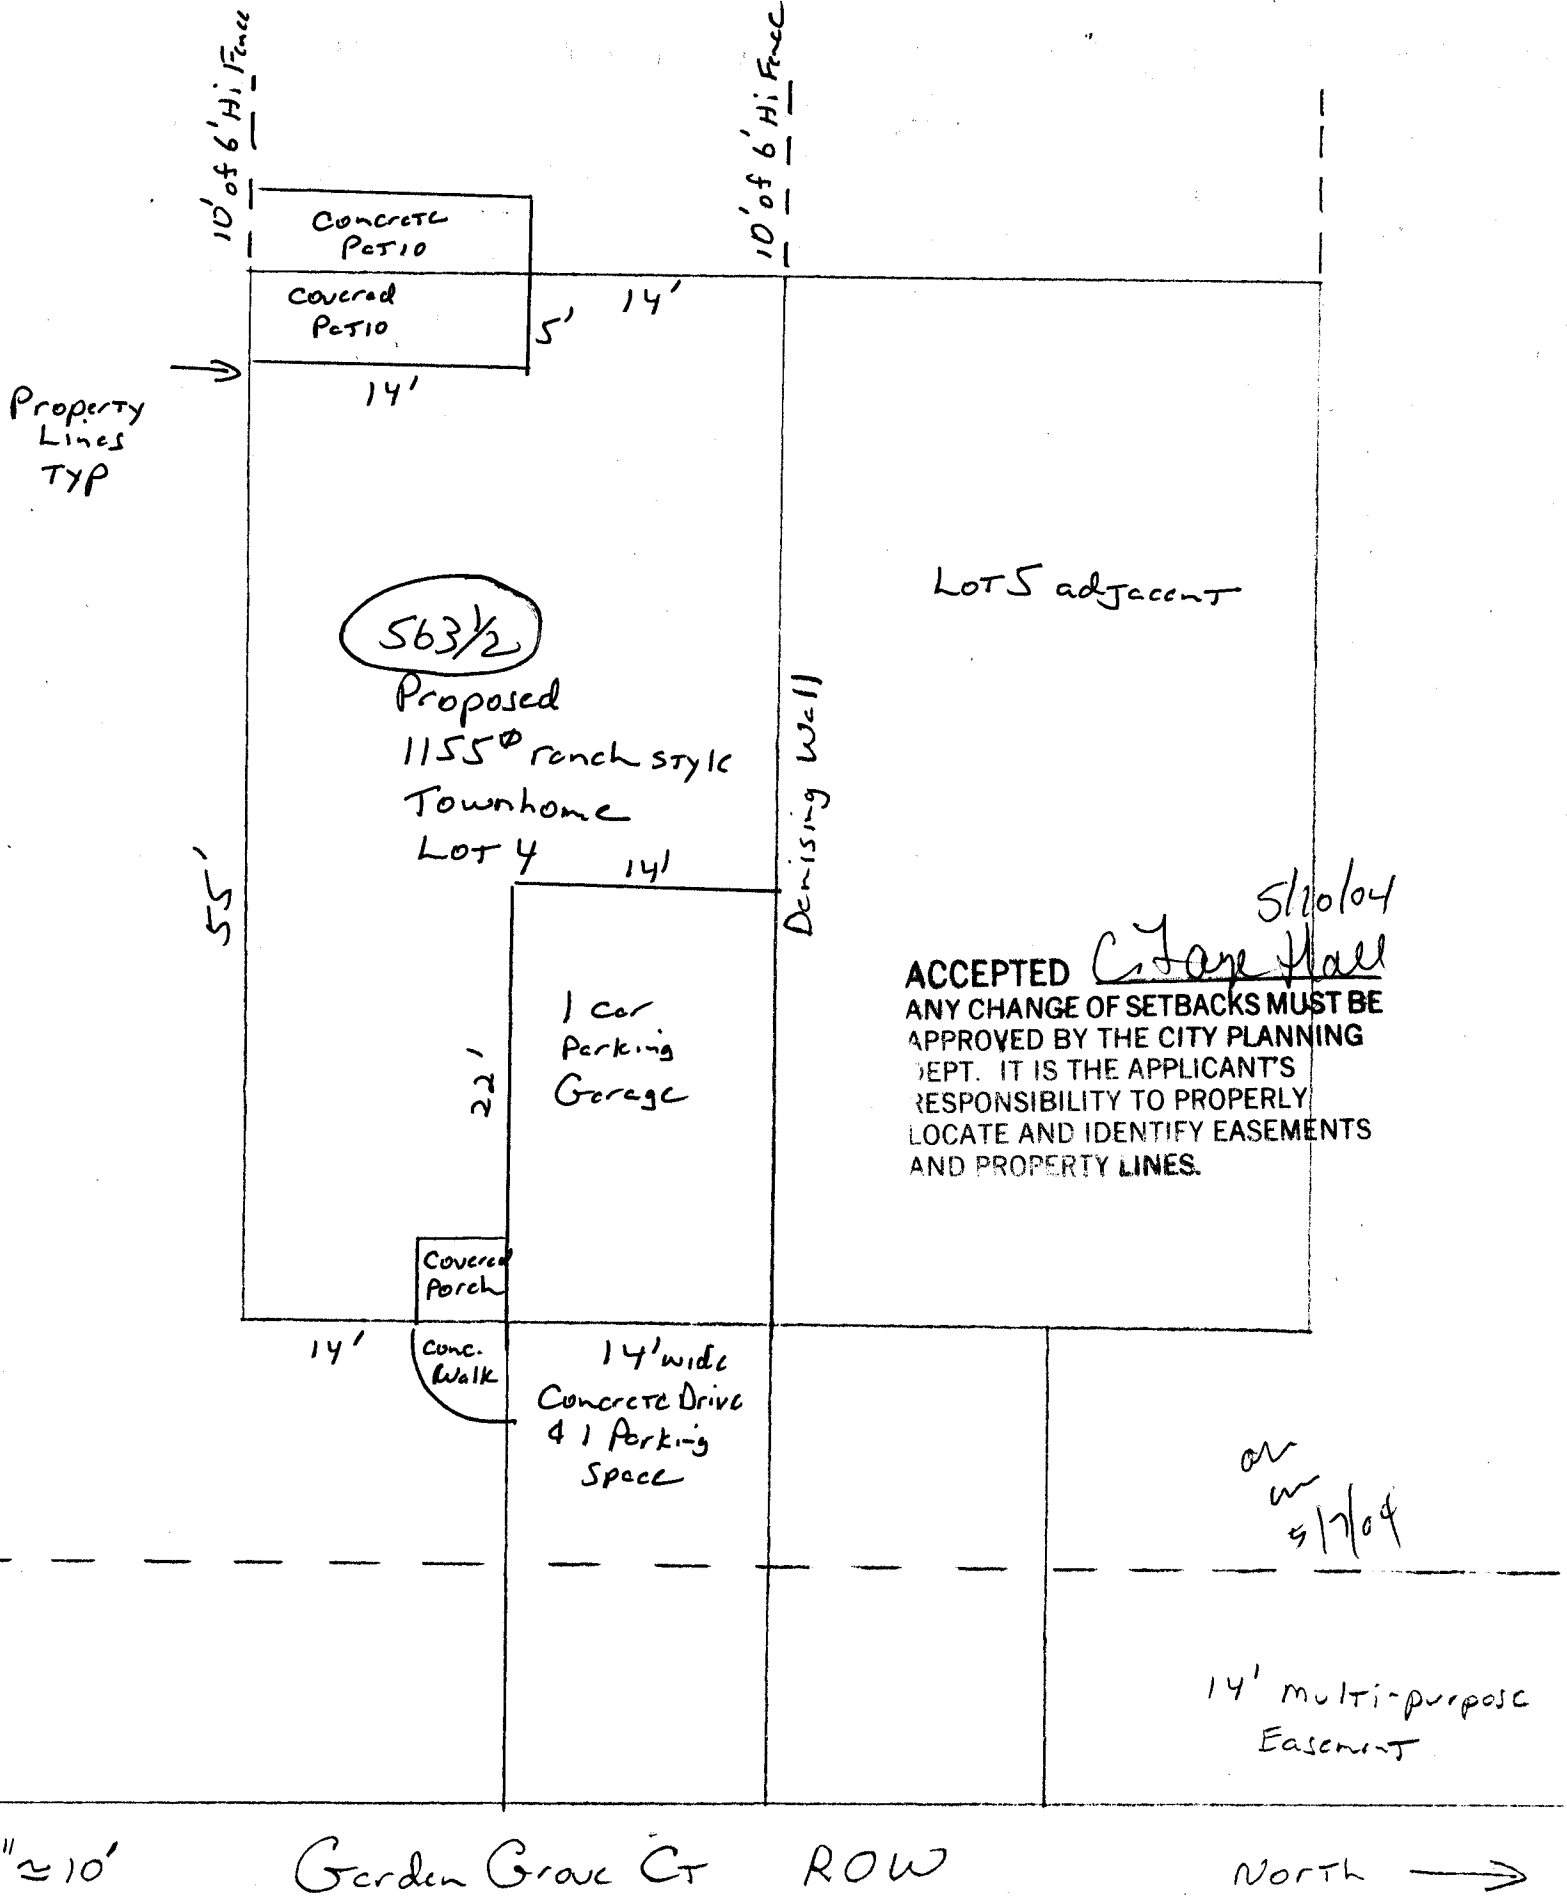 10' of 6' Hi Fence
10' of 6' Hi Fence
Concrete
Patio
Covered
Patio
14'
5'
14'
Property
Lines
TYP
563 1/2
Proposed
1155⌀ ranch style
Townhome
Lot 4
Lot 5 adjacent
Demising Wall
55'
14'
22'
1 Car
Parking
Garage
5/20/04
ACCEPTED C. Faye Hall
ANY CHANGE OF SETBACKS MUST BE
APPROVED BY THE CITY PLANNING
DEPT. IT IS THE APPLICANT'S
RESPONSIBILITY TO PROPERLY
LOCATE AND IDENTIFY EASEMENTS
AND PROPERTY LINES.
Covered
Porch
14'
Conc.
Walk
14' wide
Concrete Drive
& 1 Parking
Space
5/7/04
14' Multi-purpose
Easement
" ≃ 10'
Garden Grove Ct ROW
North